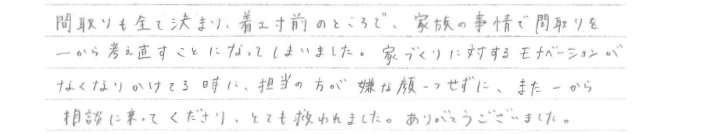 間取りも全て決まり、着工寸前のところで、家族の事情で間取りを
一から考え直すことになってしまいました。家づくりに対するモチベーションが
なくなりかけてる時に、担当の方が嫌な顔一つせずに、また一から
相談に乗ってくださり、とても救われました。ありがとうございました。